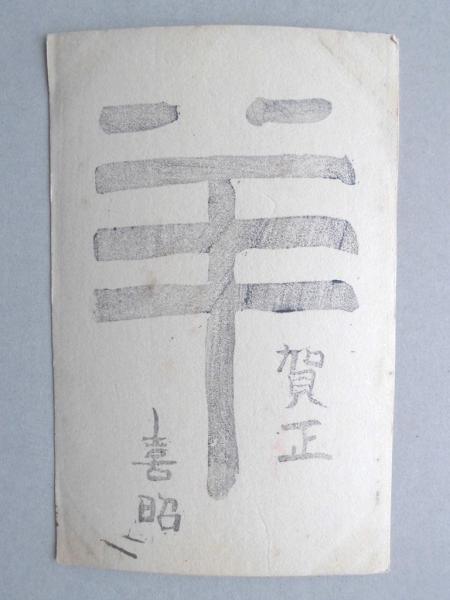 羊
賀正
喜昭